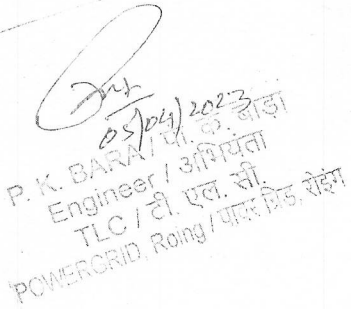 05/04/2023
P. K. BARA / पी. के. बाड़ा
Engineer / अभियंता
TLC / टी. एल. सी.
POWERGRID, Roing / पावर ग्रिड, रोइंग